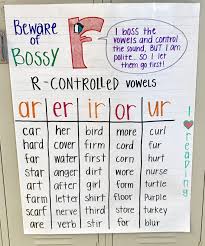 Beware
of
Bossy
I boss the
vowels and control
the sound, BUT I am
polite... so I let
them go first!
R-Controlled Vowels
ar er ir or ur
car her bird more curl
hard cover firm cord fur
far water first corn hurt
star anger dirt wore nurse
art after girl form turtle
farm letter shirt floor purple
scarf nerve third store turkey
are verb stir for blur
I ♥ reading